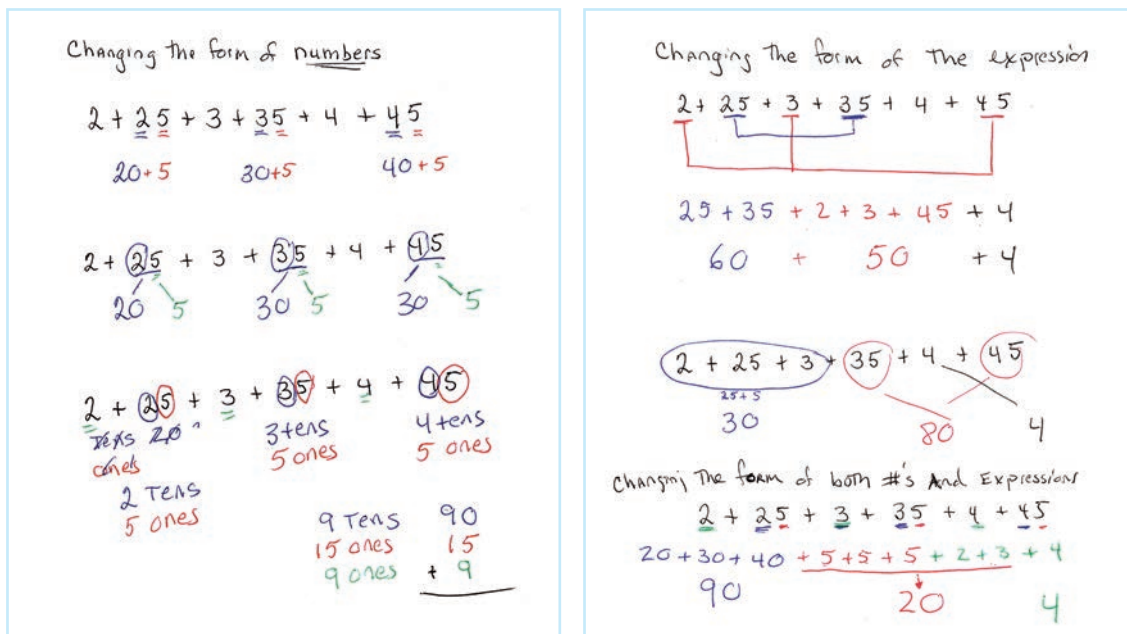 Changing the form of numbers
2 + 25 + 3 + 35 + 4 + 45
20+5 30+5 40+5
2 + 25 + 3 + 35 + 4 + 45
20 5 30 5 30 5
2 + 25 + 3 + 35 + 4 + 45
Tens 20 3 tens 4 tens
ones 5 ones 5 ones
2 Tens
5 ones
9 Tens 90
15 ones 15
9 ones + 9
Changing the form of the expression
2 + 25 + 3 + 35 + 4 + 45
25 + 35 + 2 + 3 + 45 + 4
60 + 50 + 4
2 + 25 + 3 + 35 + 4 + 45
25+5
30 80 4
Changing the form of both #'s And Expressions
2 + 25 + 3 + 35 + 4 + 45
20 + 30 + 40 + 5 + 5 + 5 + 2 + 3 + 4
90 20 4